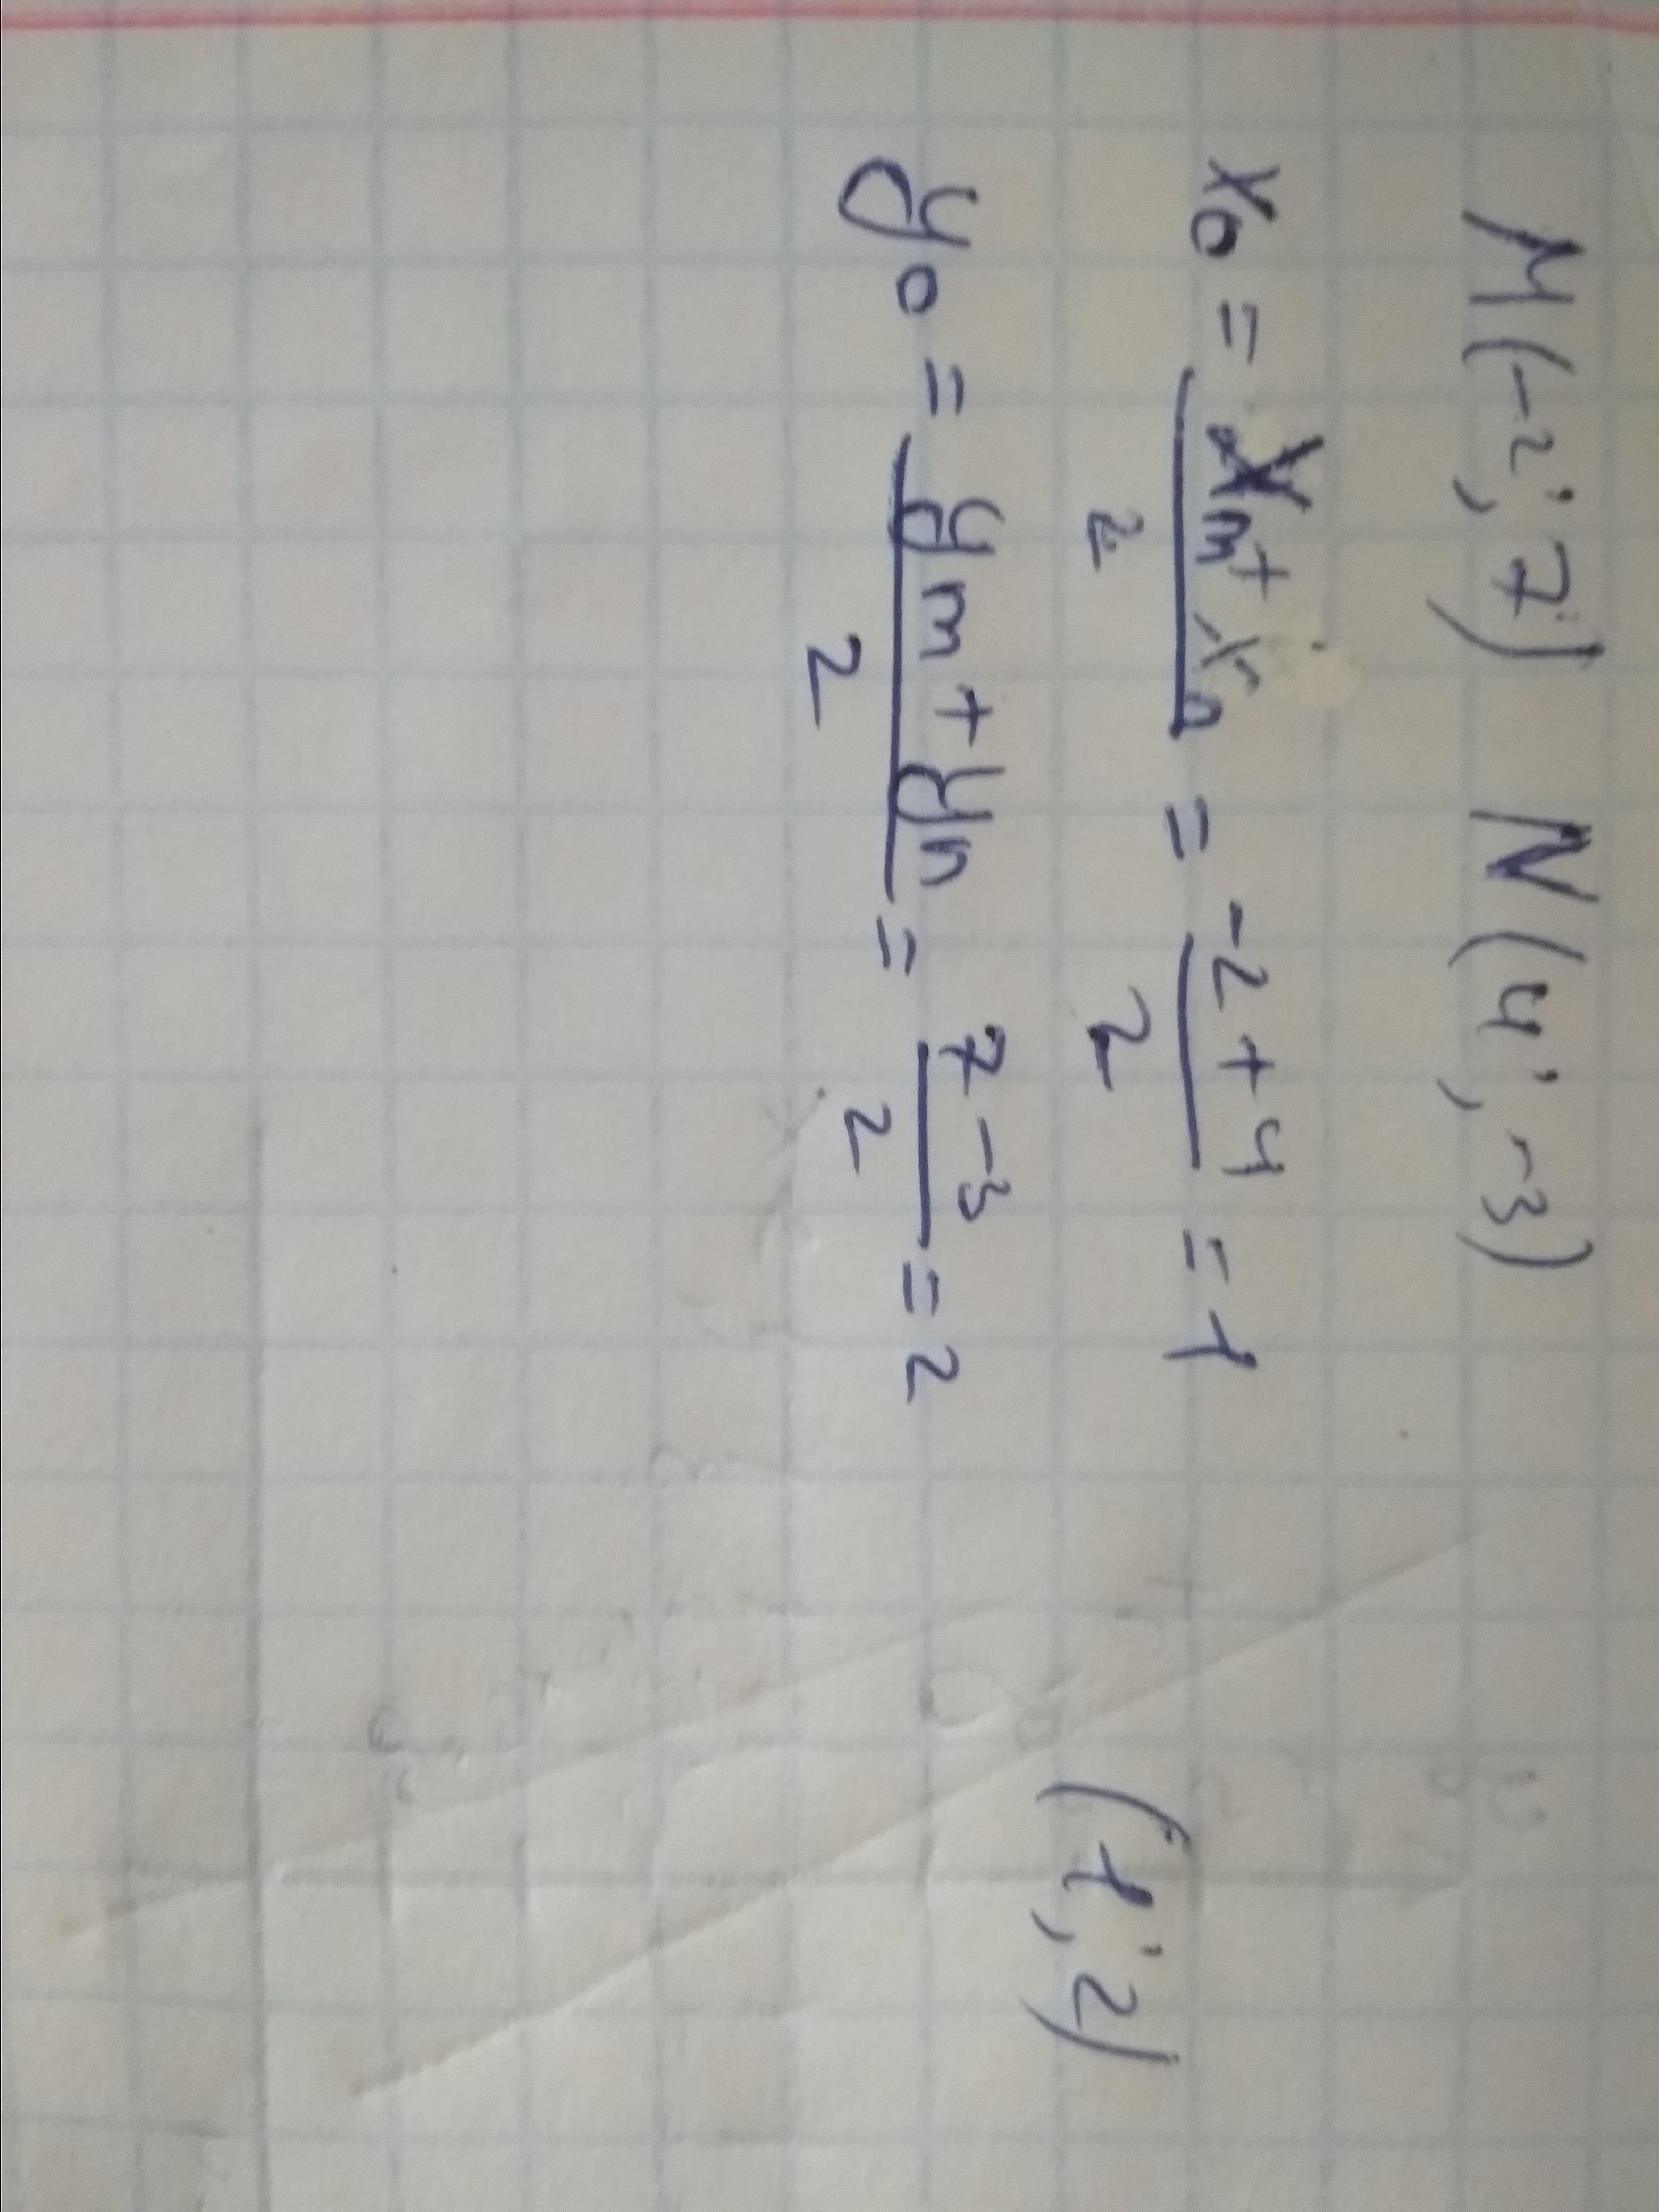 M(-2; 7) N(4; -3)
x₀ = (xm + xn)/2 = (-2+4)/2 = 1
y₀ = (ym + yn)/2 = (7-3)/2 = 2
(1; 2)